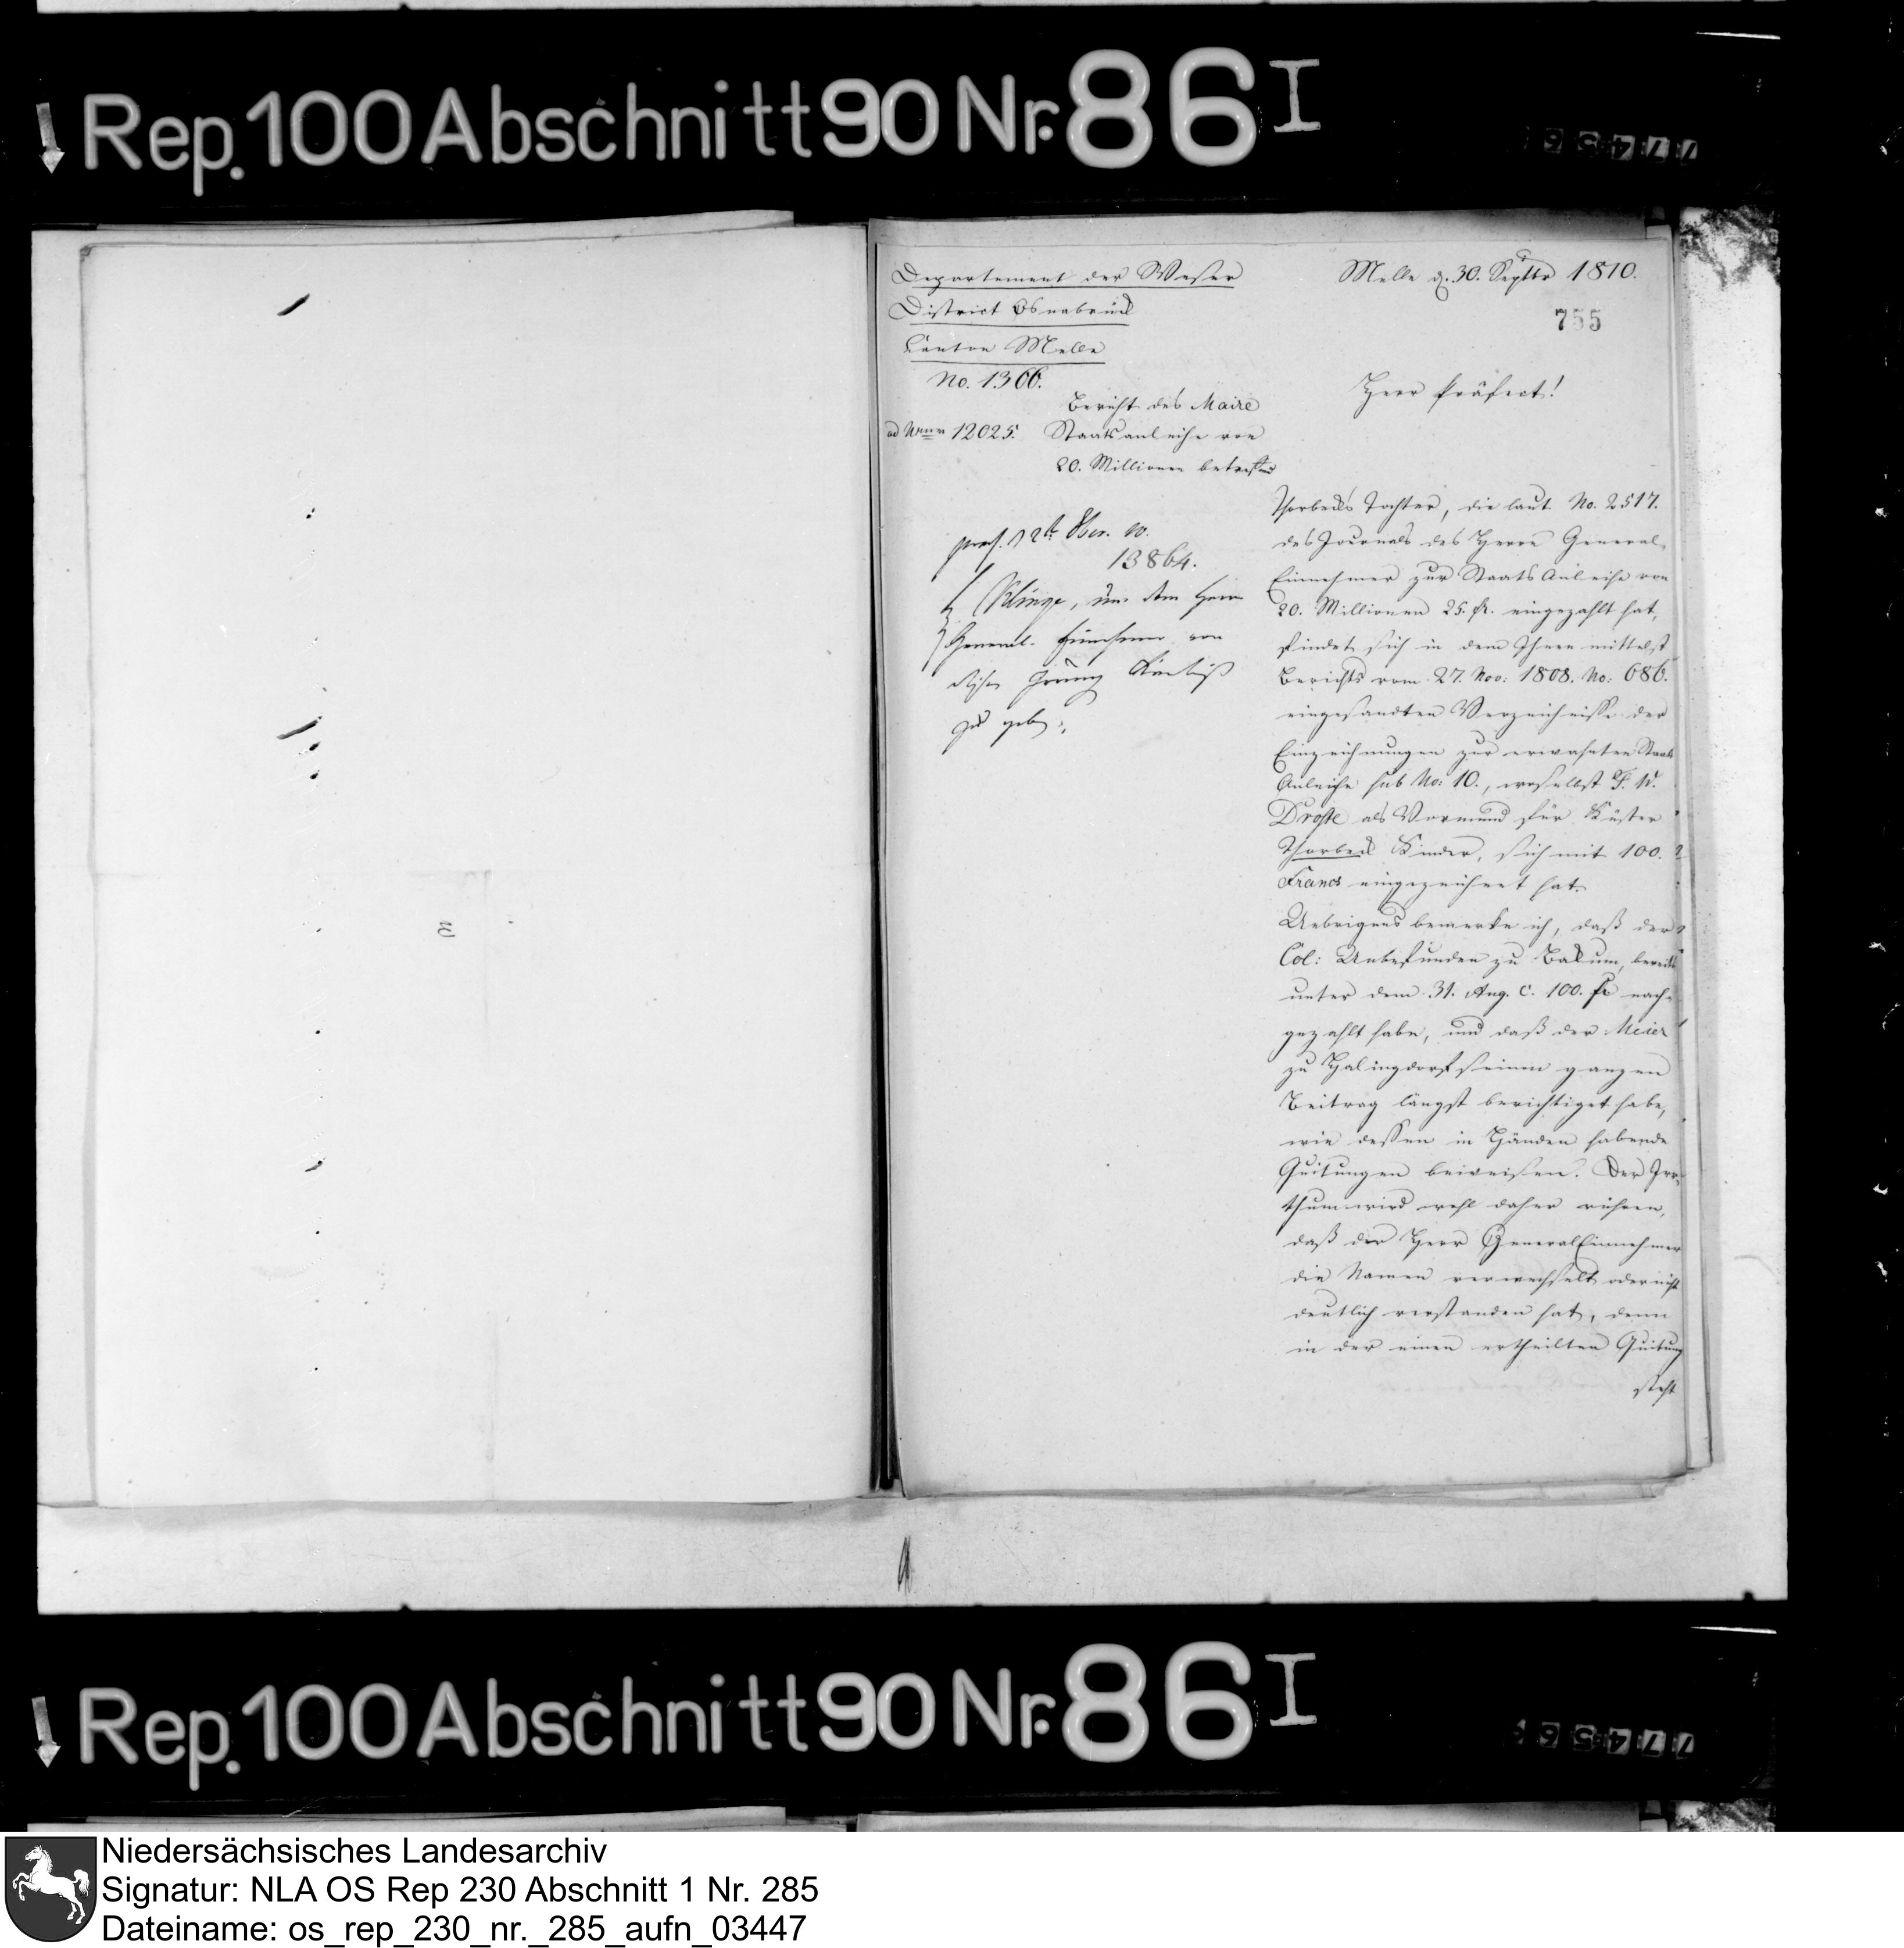 Rep. 100 Abschnitt 90 Nr. 86 I
Departement der Weser
District Osnabrück
Canton Melle
No. 1366.
Bericht des Maire
ad Num 12025. Staatsanleihe von
20. Millionen betreffend
Melle d. 30. Septbr 1810.
755
Herr Präfect!
praes. 12t 8ber. 10.
13864.
Klinge, um dem Herrn
General-Einnehmer von
zu geben.
Thorbecks Tochter, die laut No. 2517.
des Journals des Herrn General
Einnehmer zur Staats Anleihe von
20. Millionen 25. fr. eingezahlt hat,
findet sich in dem Ihnen mittelst
Berichts vom 27. Nov: 1808. No: 686.
eingesandten Verzeichnisse der
Einzeichnungen zur erwahnten Staats
Anleihe sub No: 10., woselbst F. W.
Droste als Vormund für Küster
Thorbeck Kinder, sich mit 100.
Francs eingezeichnet hat.
Uebrigens bemerke ich, daß der
Col: Unbefunden zu Bakum, bereits
unter dem 31. Aug. c. 100. fr nach-
gezahlt habe, und daß der Meier
zu Halingdorf seinen ganzen
Beitrag längst berichtiget habe,
wie dessen in Händen habende
Quitungen beweisen. Der Irr-
thum wird wohl daher rühren,
daß der Herr General Einnehmer
die Namen verwechselt oder nicht
deutlich verstanden hat, denn
in der einen ertheilten Quitung
steht
Rep. 100 Abschnitt 90 Nr. 86 I
Niedersächsisches Landesarchiv
Signatur: NLA OS Rep 230 Abschnitt 1 Nr. 285
Dateiname: os_rep_230_nr._285_aufn_03447